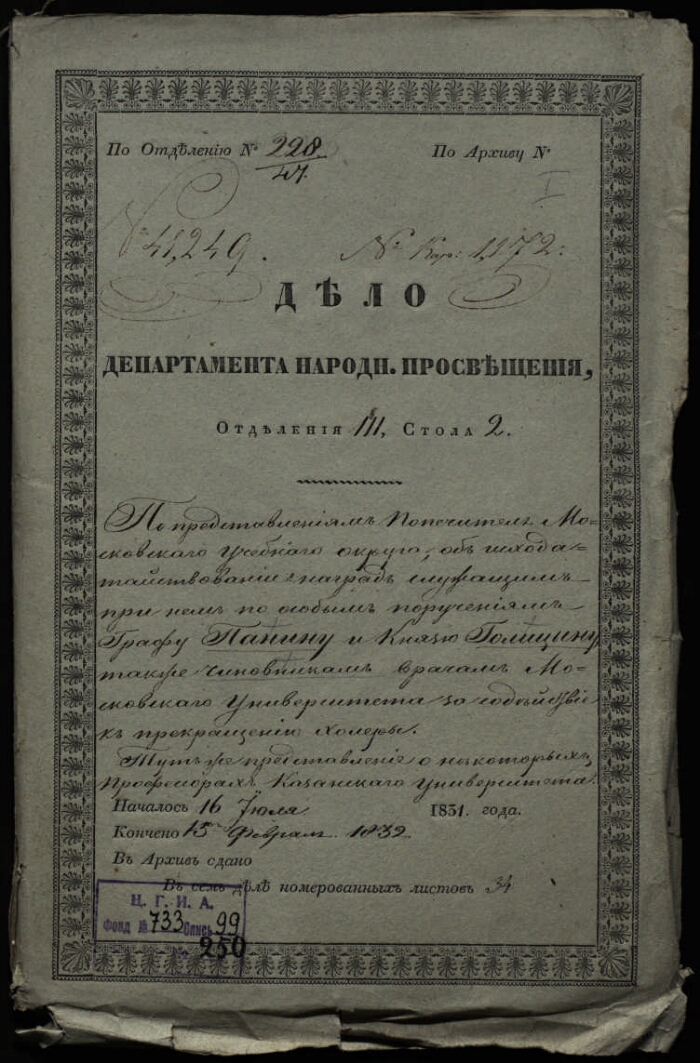 По Отдѣленію № 228/47. По Архиву №
I
№ 41,249. № Кар: 1,172:
ДѢЛО
ДЕПАРТАМЕНТА НАРОДН. ПРОСВѢЩЕНІЯ,
Отдѣленія III, Стола 2.
По представленіямъ Попечителя Мо-
сковскаго учебнаго округа, объ исхода-
тайствованіи наградъ служащимъ
при немъ по особымъ порученіямъ
Графу Панину и Князю Голицыну,
также чиновникамъ врачамъ Мо-
сковскаго Университета за содѣйствіе
къ прекращенію холеры.
Тутъ же представленіе о некоторыхъ
Професорахъ Казанскаго университета.
Началось 16 Іюля 1831. года.
Кончено 15 Феврал. 1832
Въ Архивъ сдано
Въ семъ дѣлѣ номерованныхъ листовъ 34
Ц. Г. И. А.
Фонд № 733 Опись 99
250